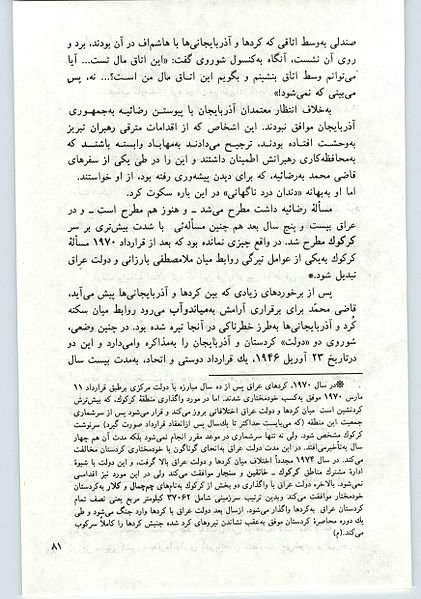 صندلی به‌وسط اتاقی که کردها و آذربایجانی‌ها با هاشم‌اف در آن بودند، برد و
روی آن نشست. آنگاه به‌کنسول شوروی گفت: «این اتاق مال تست... آیا
می‌توانم وسط اتاق بنشینم و بگویم این اتاق مال من است؟... نه، پس
می‌بینی که نمی‌شود!»
به‌خلاف انتظار معتمدان آذربایجان با پیوستن رضائیه به‌جمهوری
آذربایجان موافق نبودند. این اشخاص که از اقدامات مترقی رهبران تبریز
به‌وحشت افتاده بودند، ترجیح می‌دادند به‌مهاباد وابسته باشند که
به‌محافظه‌کاری رهبرانش اطمینان داشتند و این را در طی یکی از سفرهای
قاضی محمد به‌رضائیه، که برای دیدن پیشه‌وری رفته بود، از او خواستند.
اما او به‌بهانه «دندان درد ناگهانی» در این باره سکوت کرد.
مسألهٔ رضائیه داشت مطرح می‌شد ـ و هنوز هم مطرح است ـ و در
عراق بیست و پنج سال بعد هم چنین مسأله‌ئی با شدت بیش‌تری بر سر
کرکوک مطرح شد. در واقع چیزی نمانده بود که بعد از قرارداد ۱۹۷۰ مسألهٔ
کرکوک به‌یکی از عوامل تیرگی روابط میان ملامصطفی بارزانی و دولت عراق
تبدیل شود.*
پس از برخوردهای زیادی که بین کردها و آذربایجانی‌ها پیش می‌آید،
قاضی محمد برای برقراری آرامش به‌میاندوآب می‌رود روابط میان سکنه
کُرد و آذربایجانی‌ها به‌طرز خطرناکی در آنجا تیره شده بود. در چنین وضعی،
شوروی دو «دولت» کردستان و آذربایجان را به‌مذاکره وامی‌دارد و این دو
درتاریخ ۲۳ آوریل ۱۹۴۶، یك قرارداد دوستی و اتحاد، به‌مدت بیست سال
*در سال ۱۹۷۰، کردهای عراق پس از ده سال مبارزه با دولت مرکزی برطبق قرارداد ۱۱
مارس ۱۹۷۰ موفق به‌کسب خودمختاری شدند. اما در مورد واگذاری منطقهٔ کرکوک، که بیش‌ترش
کردنشین است میان کردها و دولت عراق اختلافاتی بروز می‌کند و قرار می‌شود پس از سرشماری
جمعیت این منطقه (که می‌بایست حداکثر تا یك‌سال پس ازانعقاد قرارداد صورت گیرد) سرنوشت
کرکوک مشخص شود. ولی نه تنها سرشماری در موعد مقرر انجام نمی‌شود بلکه مدت آن هم چهار
سال به‌تأخیرمی‌افتد. در این مدت دولت عراق به‌انحای گوناگون با خودمختاری کردستان مخالفت
می‌کند. در سال ۱۹۷۴ مجدداً اختلاف میان کردها و دولت عراق بالا گرفت، و این دولت با شیوهٔ
ادارهٔ مشترک مناطق کرکوک ـ خانقین و سنجار موافقت می‌کند ولی در این مورد نیز اقدامی
نمی‌شود. بالاخره دولت عراق با واگذاری دو بخش از کرکوک به‌نام‌های چم‌چمال و کلار به‌کردستان
خودمختار موافقت می‌کند وبدین ترتیب سرزمینی شامل ۳۷۰۶۲ کیلومتر مربع یعنی نصف تمام
کردستان عراق به‌کردها واگذار می‌شود. ازسال بعد دولت عراق با کردها وارد جنگ می‌شود و طی
یك دوره محاصرهٔ کردستان موفق به‌عقب نشاندن نیروهای کرد شده جنبش کردها را کاملاً سرکوب
می‌کند.(م)
۸۱